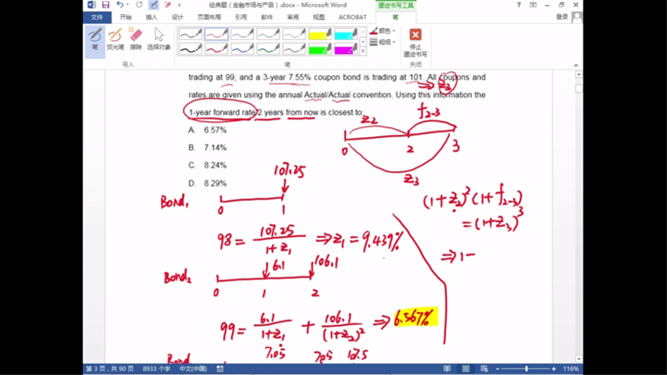 经典题(金融市场与产品).docx - Microsoft Word
墨迹书写工具
文件
开始
插入
设计
页面布局
引用
邮件
审阅
视图
ACROBAT
笔
登录
笔
荧光笔
擦除
选择对象
颜色
粗细
停止
墨迹书写
写入
笔
关闭
trading at 99, and a 3-year 7.55% coupon bond is trading at 101. All coupons and
rates are given using the annual Actual/Actual convention. Using this information the
1-year forward rate 2 years from now is closest to:
A. 6.57%
B. 7.14%
C. 8.24%
D. 8.29%
⇒ Z3
Z2 f2-3
0 2 3
Z3
107.25
Bond1
0 1
(1+Z2)²(1+f2-3)
=(1+Z3)³
98 = 107.25/1+Z1 ⇒ Z1 = 9.439%
⇒ 1-
6.1 106.1
Bond2
0 1 2
99 = 6.1/1+Z1 + 106.1/(1+Z2)² ⇒ 6.567%
7.05 7.05 107.5
Bond
第 3 页,共 90 页 8933 个字 中文(中国)
116%